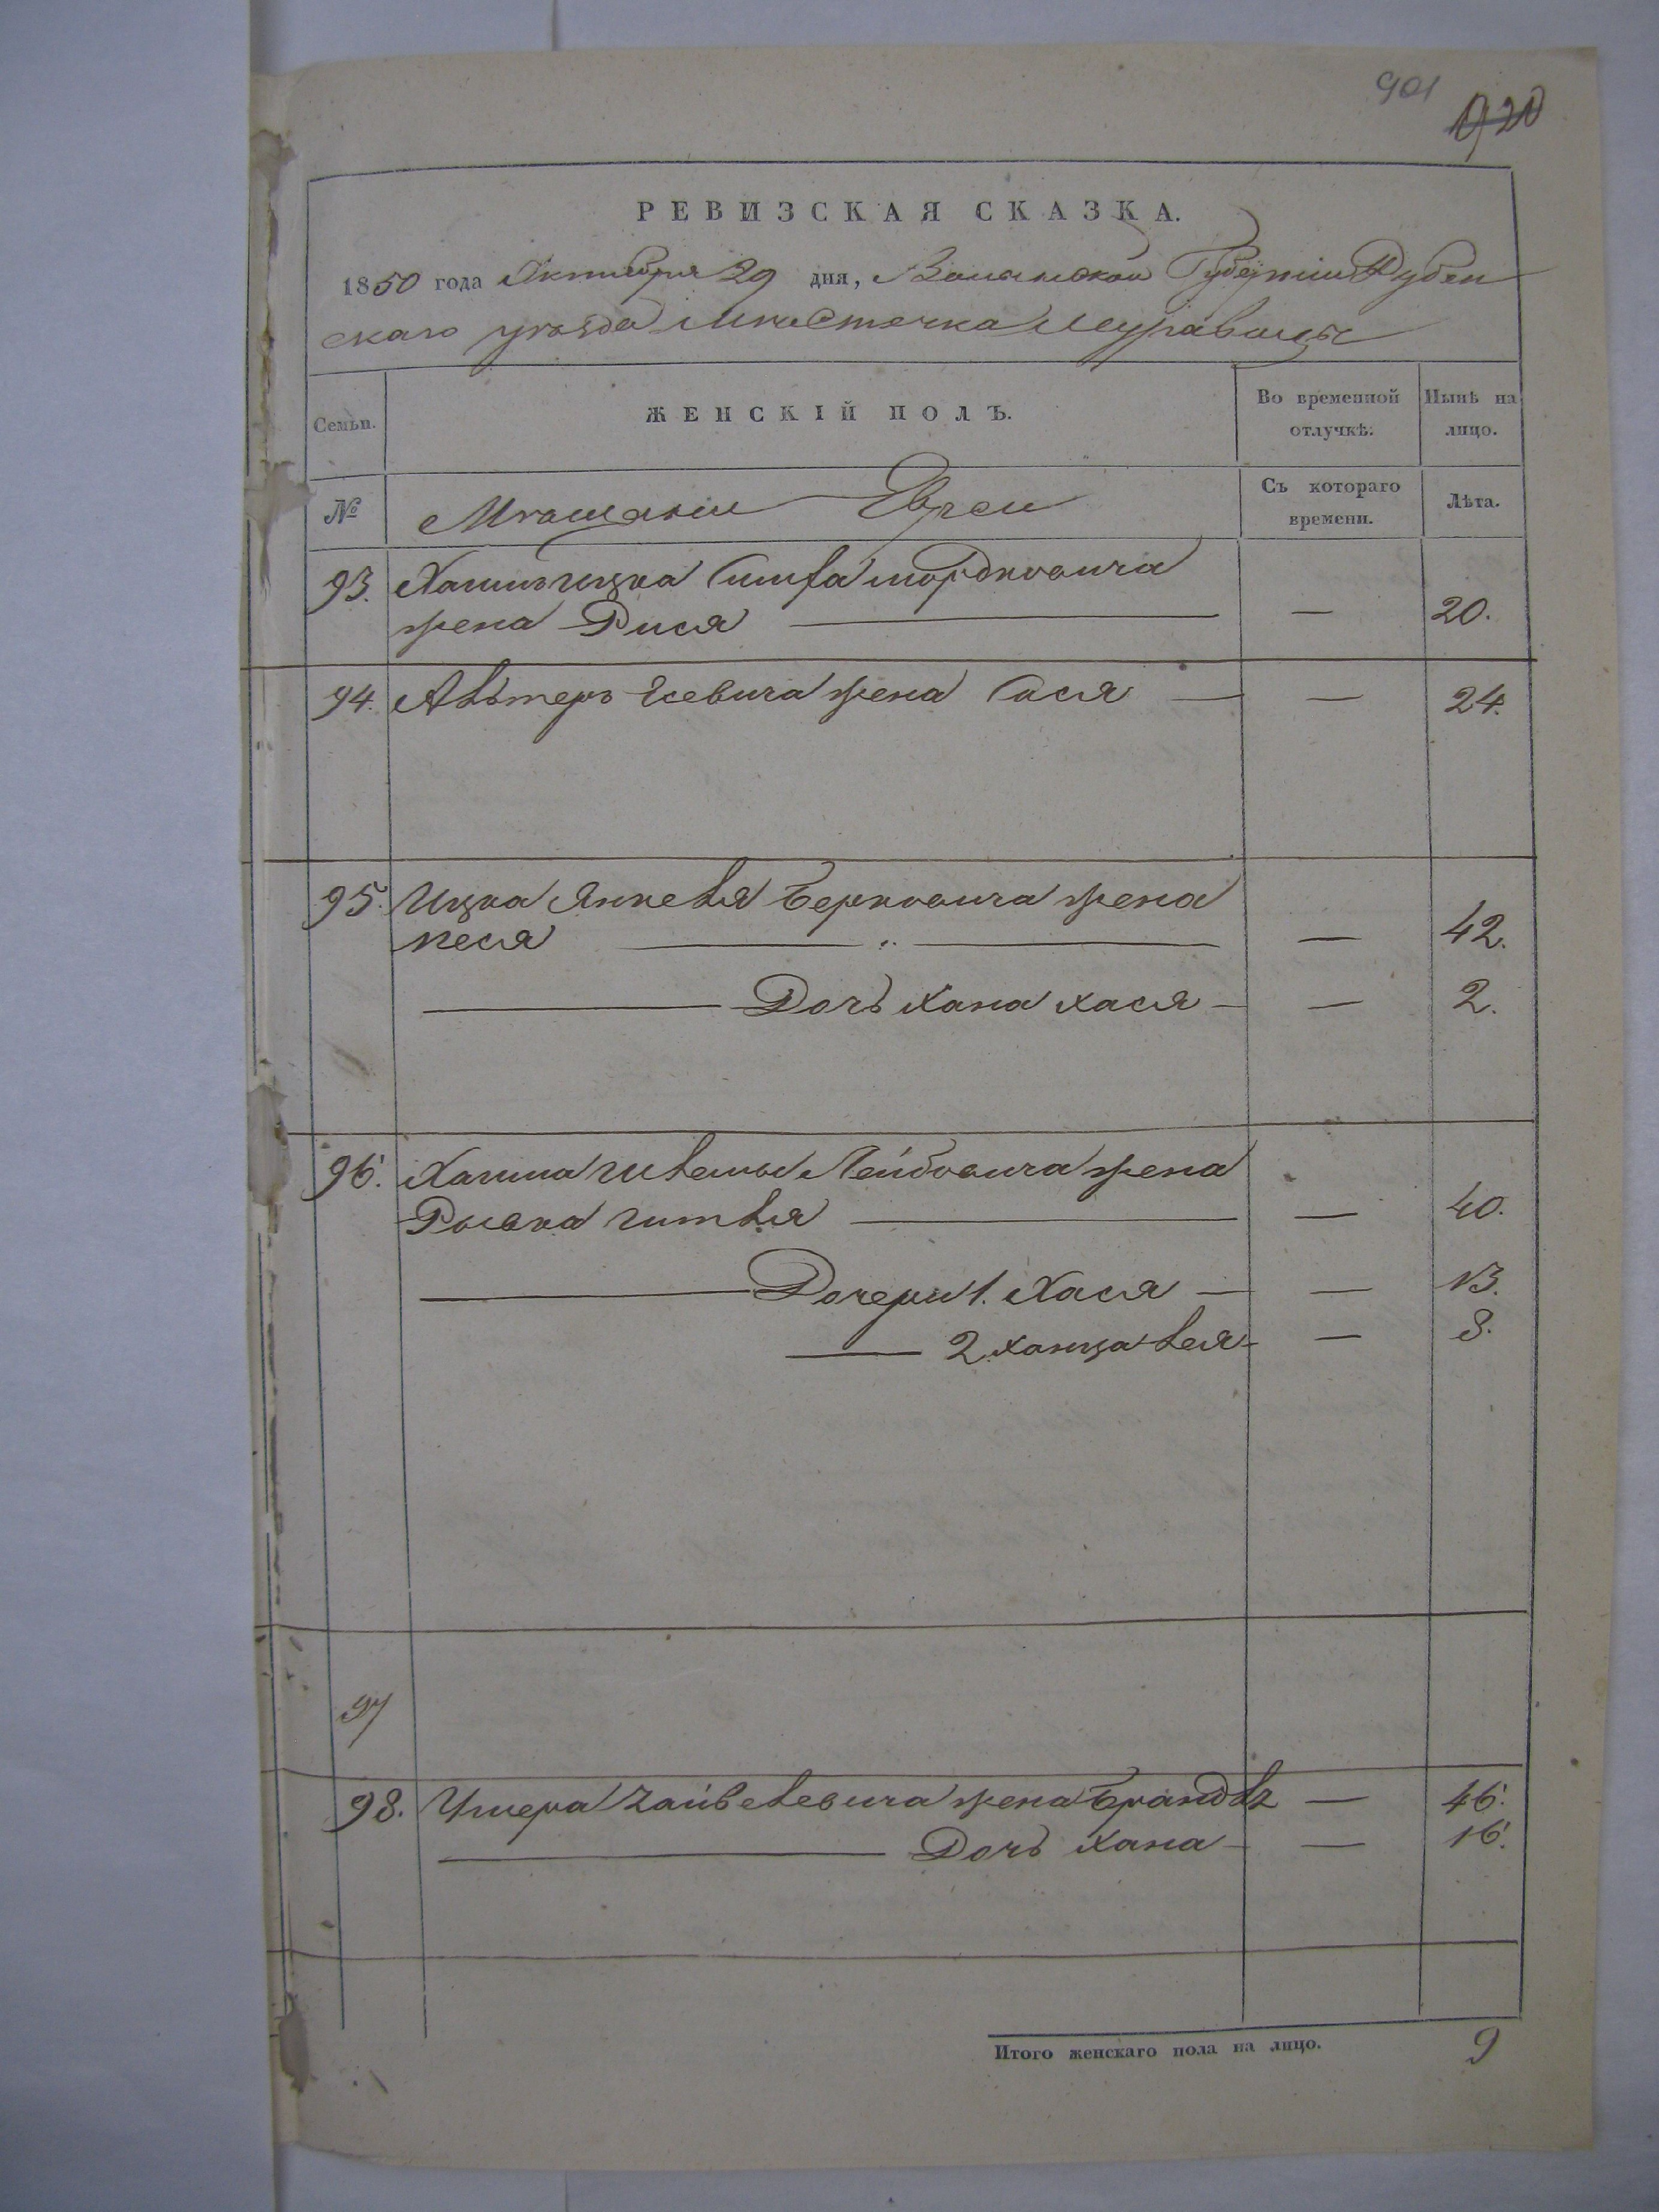 901
920
РЕВИЗСКАЯ СКАЗКА.
1850 года Октября 29 дня, Волынской Губерніи Дубен
скаго уѣзда Мѣстечка Муравицы
Семьи. ЖЕНСКІЙ ПОЛЪ. Во временной отлучкѣ. Нынѣ на лицо.
№ Мѣщанѣ Евреи Съ котораго времени. Лѣта.
93. Хаимъ Ицка Мордковича
жена Рися — 20.
94. Альтеръ жена Сася — — 24.
95. Ицка Янкеля Берковича жена
Песя — 42.
Дочь Хана Хася — — 2.
96. Хаима Лейбовича жена
Рывка Гитля — 40.
Дочери 1. Хася — — 13.
2 Ханца Лея — 8.
97
98. Умера жена Брандль — 46.
Дочь Хана — — 16.
Итого женскаго пола на лицо. 9